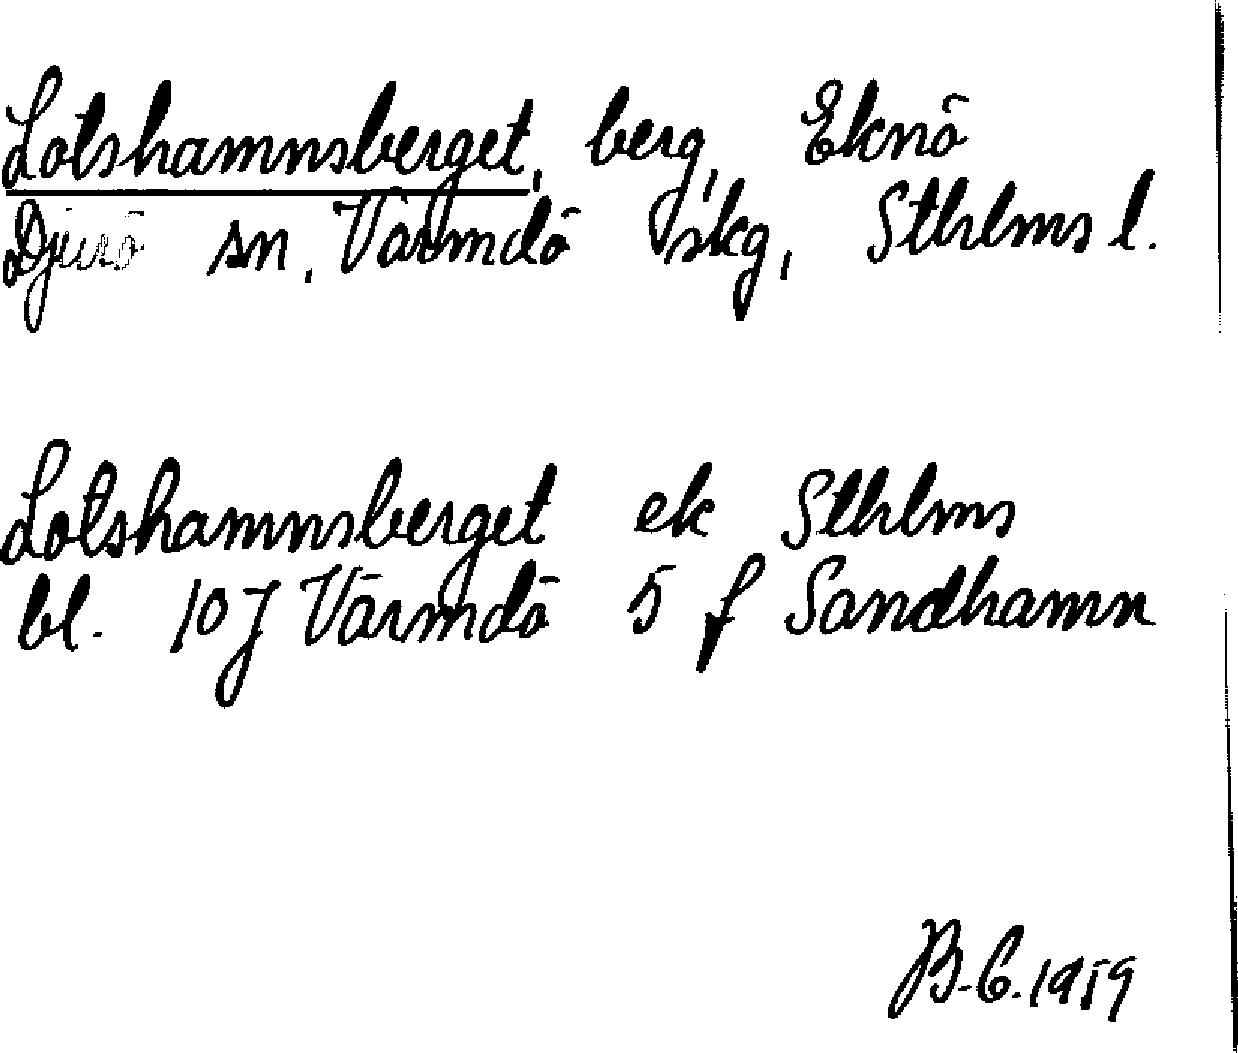 Lotshamnsberget, berg, Eknö
Djurö sn, Värmdö skg, Sthlms l.
Lotshamnsberget ek Sthlms
bl. 10J Värmdö 5 f Sandhamn
B.C. 1959